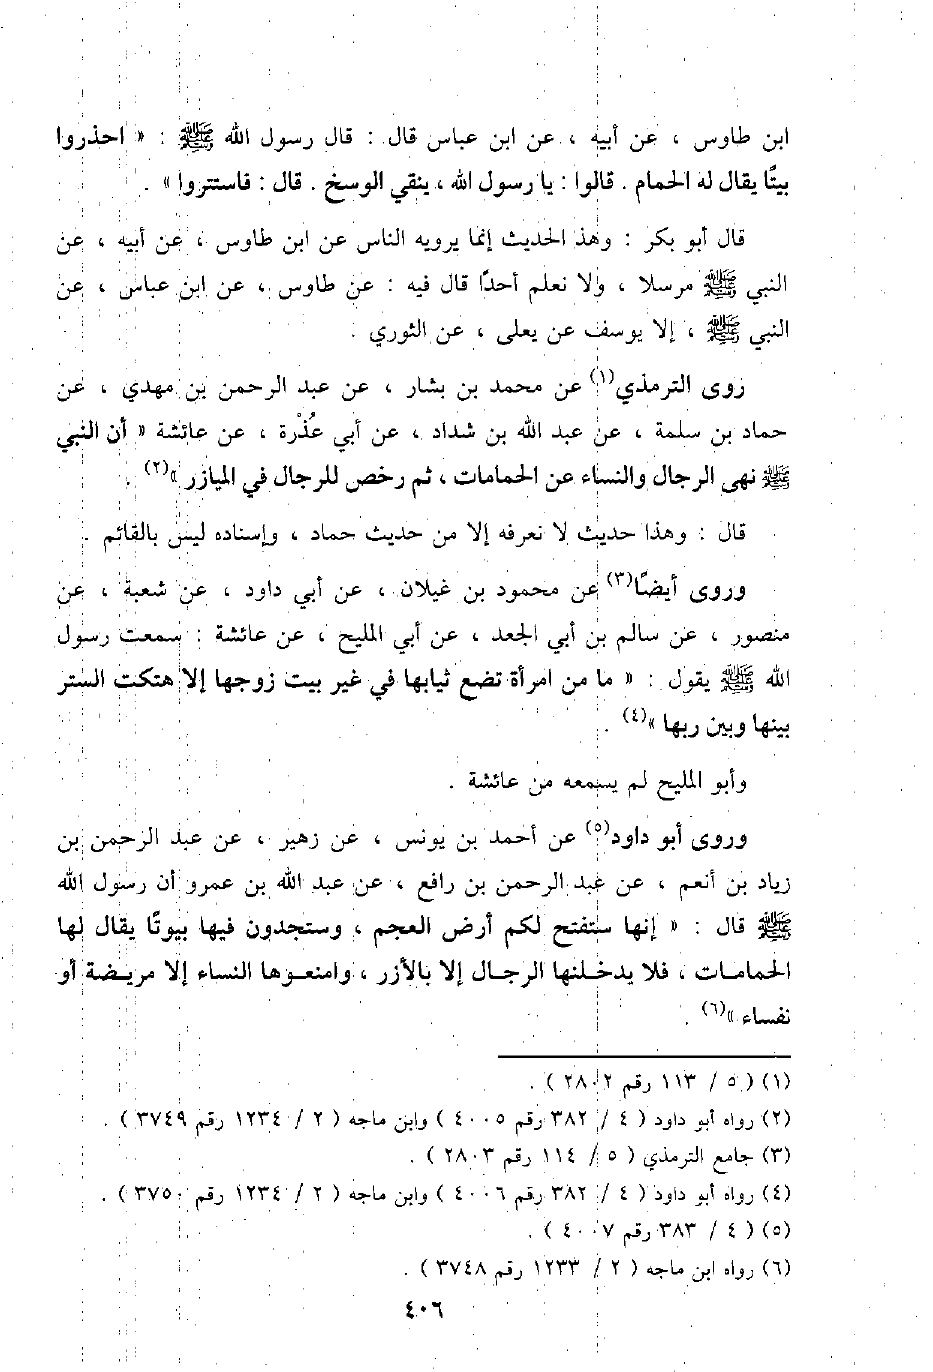 ابن طاوس ، عن أبيه ، عن ابن عباس قال : قال رسول الله ﷺ : « احذروا
بيتًا يقال له الحمام . قالوا : يا رسول الله ، ينقي الوسخ . قال : فاستتروا » .
قال أبو بكر : وهذ الحديث إنما يرويه الناس عن ابن طاوس ، عن أبيه ، عن
النبي ﷺ مرسلا ، ولا نعلم أحدًا قال فيه : عن طاوس ، عن ابن عباس ، عن
النبي ﷺ ، إلا يوسف عن يعلى ، عن الثوري .
روى الترمذي(١) عن محمد بن بشار ، عن عبد الرحمن بن مهدي ، عن
حماد بن سلمة ، عن عبد الله بن شداد ، عن أبي عُذْرة ، عن عائشة « أن النبي
ﷺ نهى الرجال والنساء عن الحمامات ، ثم رخص للرجال في الميازر »(٢) .
قال : وهذا حديث لا نعرفه إلا من حديث حماد ، وإسناده ليس بالقائم .
وروى أيضًا(٣) عن محمود بن غيلان ، عن أبي داود ، عن شعبة ، عن
منصور ، عن سالم بن أبي الجعد ، عن أبي المليح ، عن عائشة : سمعت رسول
الله ﷺ يقول : « ما من امرأة تضع ثيابها في غير بيت زوجها إلا هتكت الستر
بينها وبين ربها »(٤) .
وأبو المليح لم يسمعه من عائشة .
وروى أبو داود(٥) عن أحمد بن يونس ، عن زهير ، عن عبد الرحمن بن
زياد بن أنعم ، عن عبد الرحمن بن رافع ، عن عبد الله بن عمرو أن رسول الله
ﷺ قال : « إنها ستفتح لكم أرض العجم ، وستجدون فيها بيوتًا يقال لها
الحمامات ، فلا يدخلنها الرجال إلا بالأزر ، وامنعوها النساء إلا مريضة أو
نفساء »(٦) .
(١) ( ٥ / ١١٣ رقم ٢٨٠٢ ) .
(٢) رواه أبو داود ( ٤ / ٣٨٢ رقم ٤٠٠٥ ) وابن ماجه ( ٢ / ١٢٣٤ رقم ٣٧٤٩ ) .
(٣) جامع الترمذي ( ٥ / ١١٤ رقم ٢٨٠٣ ) .
(٤) رواه أبو داود ( ٤ / ٣٨٢ رقم ٤٠٠٦ ) وابن ماجه ( ٢ / ١٢٣٤ رقم ٣٧٥٠ ) .
(٥) ( ٤ / ٣٨٣ رقم ٤٠٠٧ ) .
(٦) رواه ابن ماجه ( ٢ / ١٢٣٣ رقم ٣٧٤٨ ) .
٤٠٦